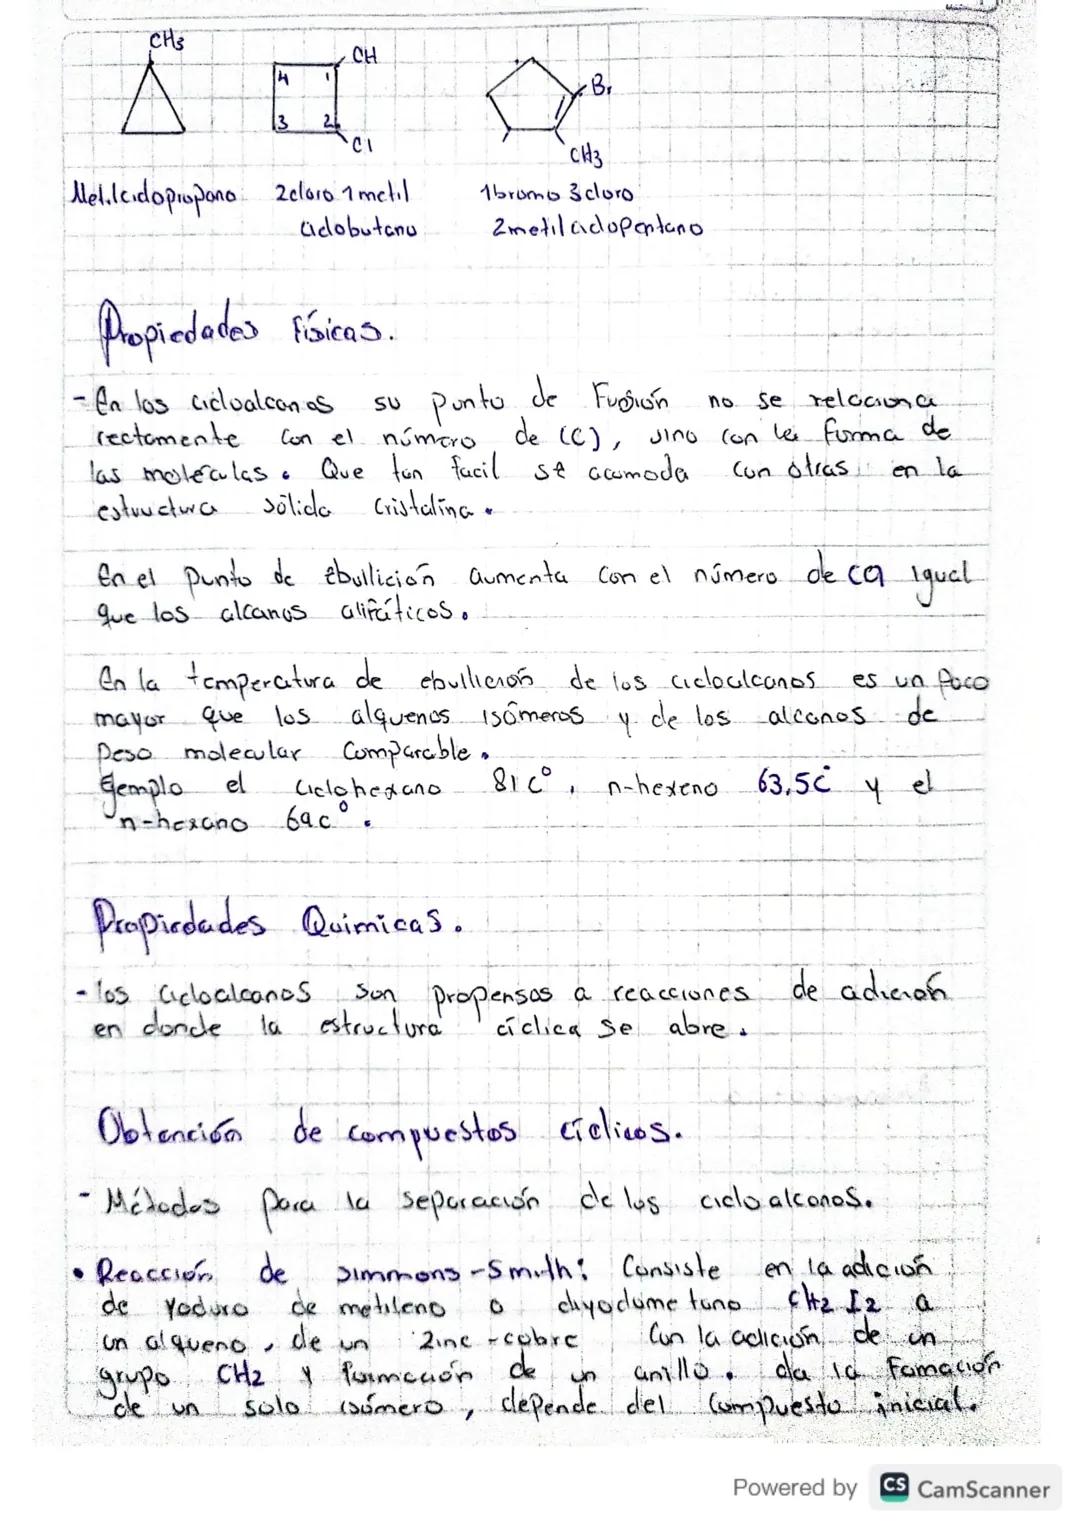 CH3
CH
4 1
3 2
Cl
Br
CH3
Metilciclopropano 2cloro 1metil 1bromo 3cloro
ciclobutano 2metilciclopentano
Propiedades Físicas.
- En los cicloalcanos su punto de Fusión no se relaciona
rectamente con el número de (C), sino con la forma de
las moléculas. Que tan facil se acomoda con otras en la
estructura sólida cristalina.
En el punto de Ebullición aumenta con el número de Ca igual
que los alcanos alifáticos.
En la temperatura de ebullición de los cicloalcanos es un poco
mayor que los alquenos isómeros y de los alcanos de
Peso molecular comparable.
Ejemplo el ciclohexano 81 c°, n-hexeno 63,5c° y el
n-hexano 69c°.
Propiedades Quimicas.
- los cicloalcanos son propensos a reacciones de adición
en donde la estructura cíclica se abre.
Obtención de compuestos cíclicos.
- Métodos para la separación de los cicloalcanos.
• Reacción de simmons-Smith: Consiste en la adición
de Yoduro de metileno o diyodometano CH2 I2 a
un alqueno, de un Zinc-cobre Con la adición de un
grupo CH2 y formación de un anillo. da la Famación
de un solo isómero, depende del compuesto inicial.
Powered by CS CamScanner